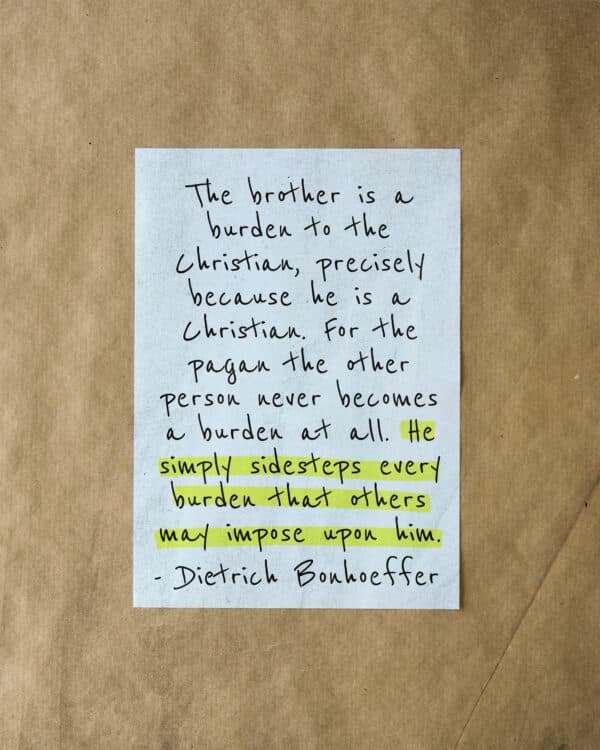 The brother is a
burden to the
Christian, precisely
because he is a
Christian. For the
pagan the other
person never becomes
a burden at all. He
simply sidesteps every
burden that others
may impose upon him.
- Dietrich Bonhoeffer